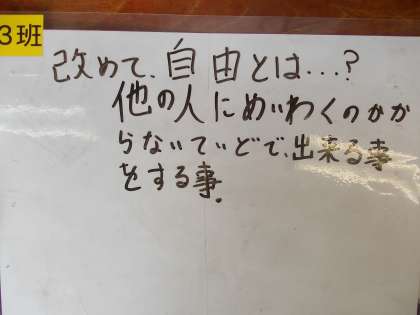 3班
改めて、自由とは…?
他の人にめいわくのかか
らないていどで、出来る事
をする事.